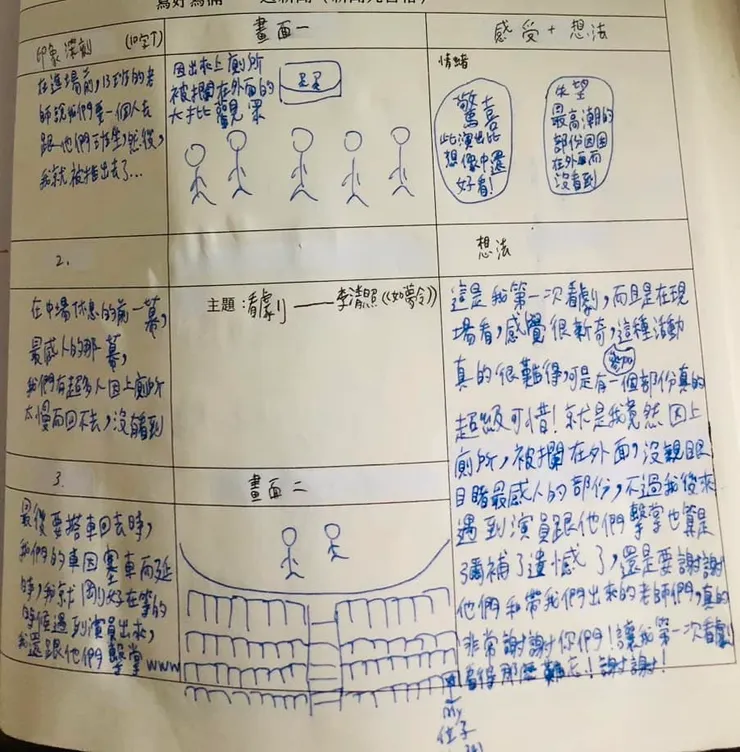 印象深刻 (10字↑)
在進場前,13班的老
師說我們要一個人去
跟他們班坐,然後,
我就被推出去了...
畫面一
因出來上廁所
被攔在外面的
大批觀眾
感受+想法
情緒
驚喜
此演出比
想像中還
好看!
失望
因最高潮的
部份因困
在外面而
沒看到
2.
在中場休息的前一幕,
最感人的那幕,
我們有超多人因上廁所
太慢而回不去,沒有看到
主題 看劇——李清照《如夢令》
想法
這是我第一次看劇,而且是在現
場看,感覺很新奇,這種活動
真的很難得,可是有一個部份真的
參加
超級可惜!就是我竟然因上
廁所,被攔在外面,沒親眼
目睹最感人的部份,不過我後來
遇到演員跟他們擊掌也算是
彌補了遺憾了,還是要謝謝
他們和帶我們出來的老師們,真的
非常謝謝你們!讓我第一次看劇
看得那麼難忘!謝謝!
3.
最後要搭車回去時,
我們的車因塞車而延
時,我就剛好在等的
時候遇到演員出來,
我還跟他們擊掌www
畫面二
my
位子